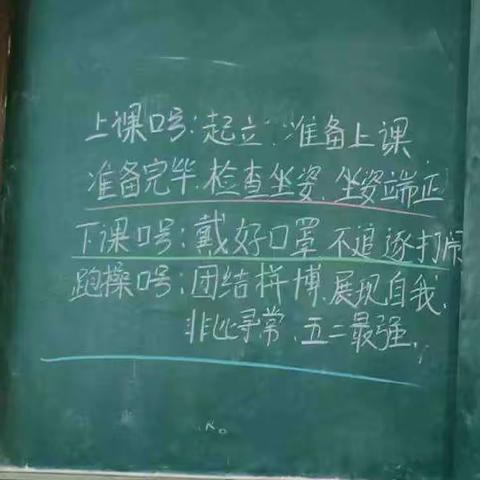 上课口号:起立:准备上课
准备完毕.检查坐姿.坐姿端正
下课口号:戴好口罩.不追逐打闹
跑操口号:团结拼搏.展现自我.
非比寻常.五二最强.